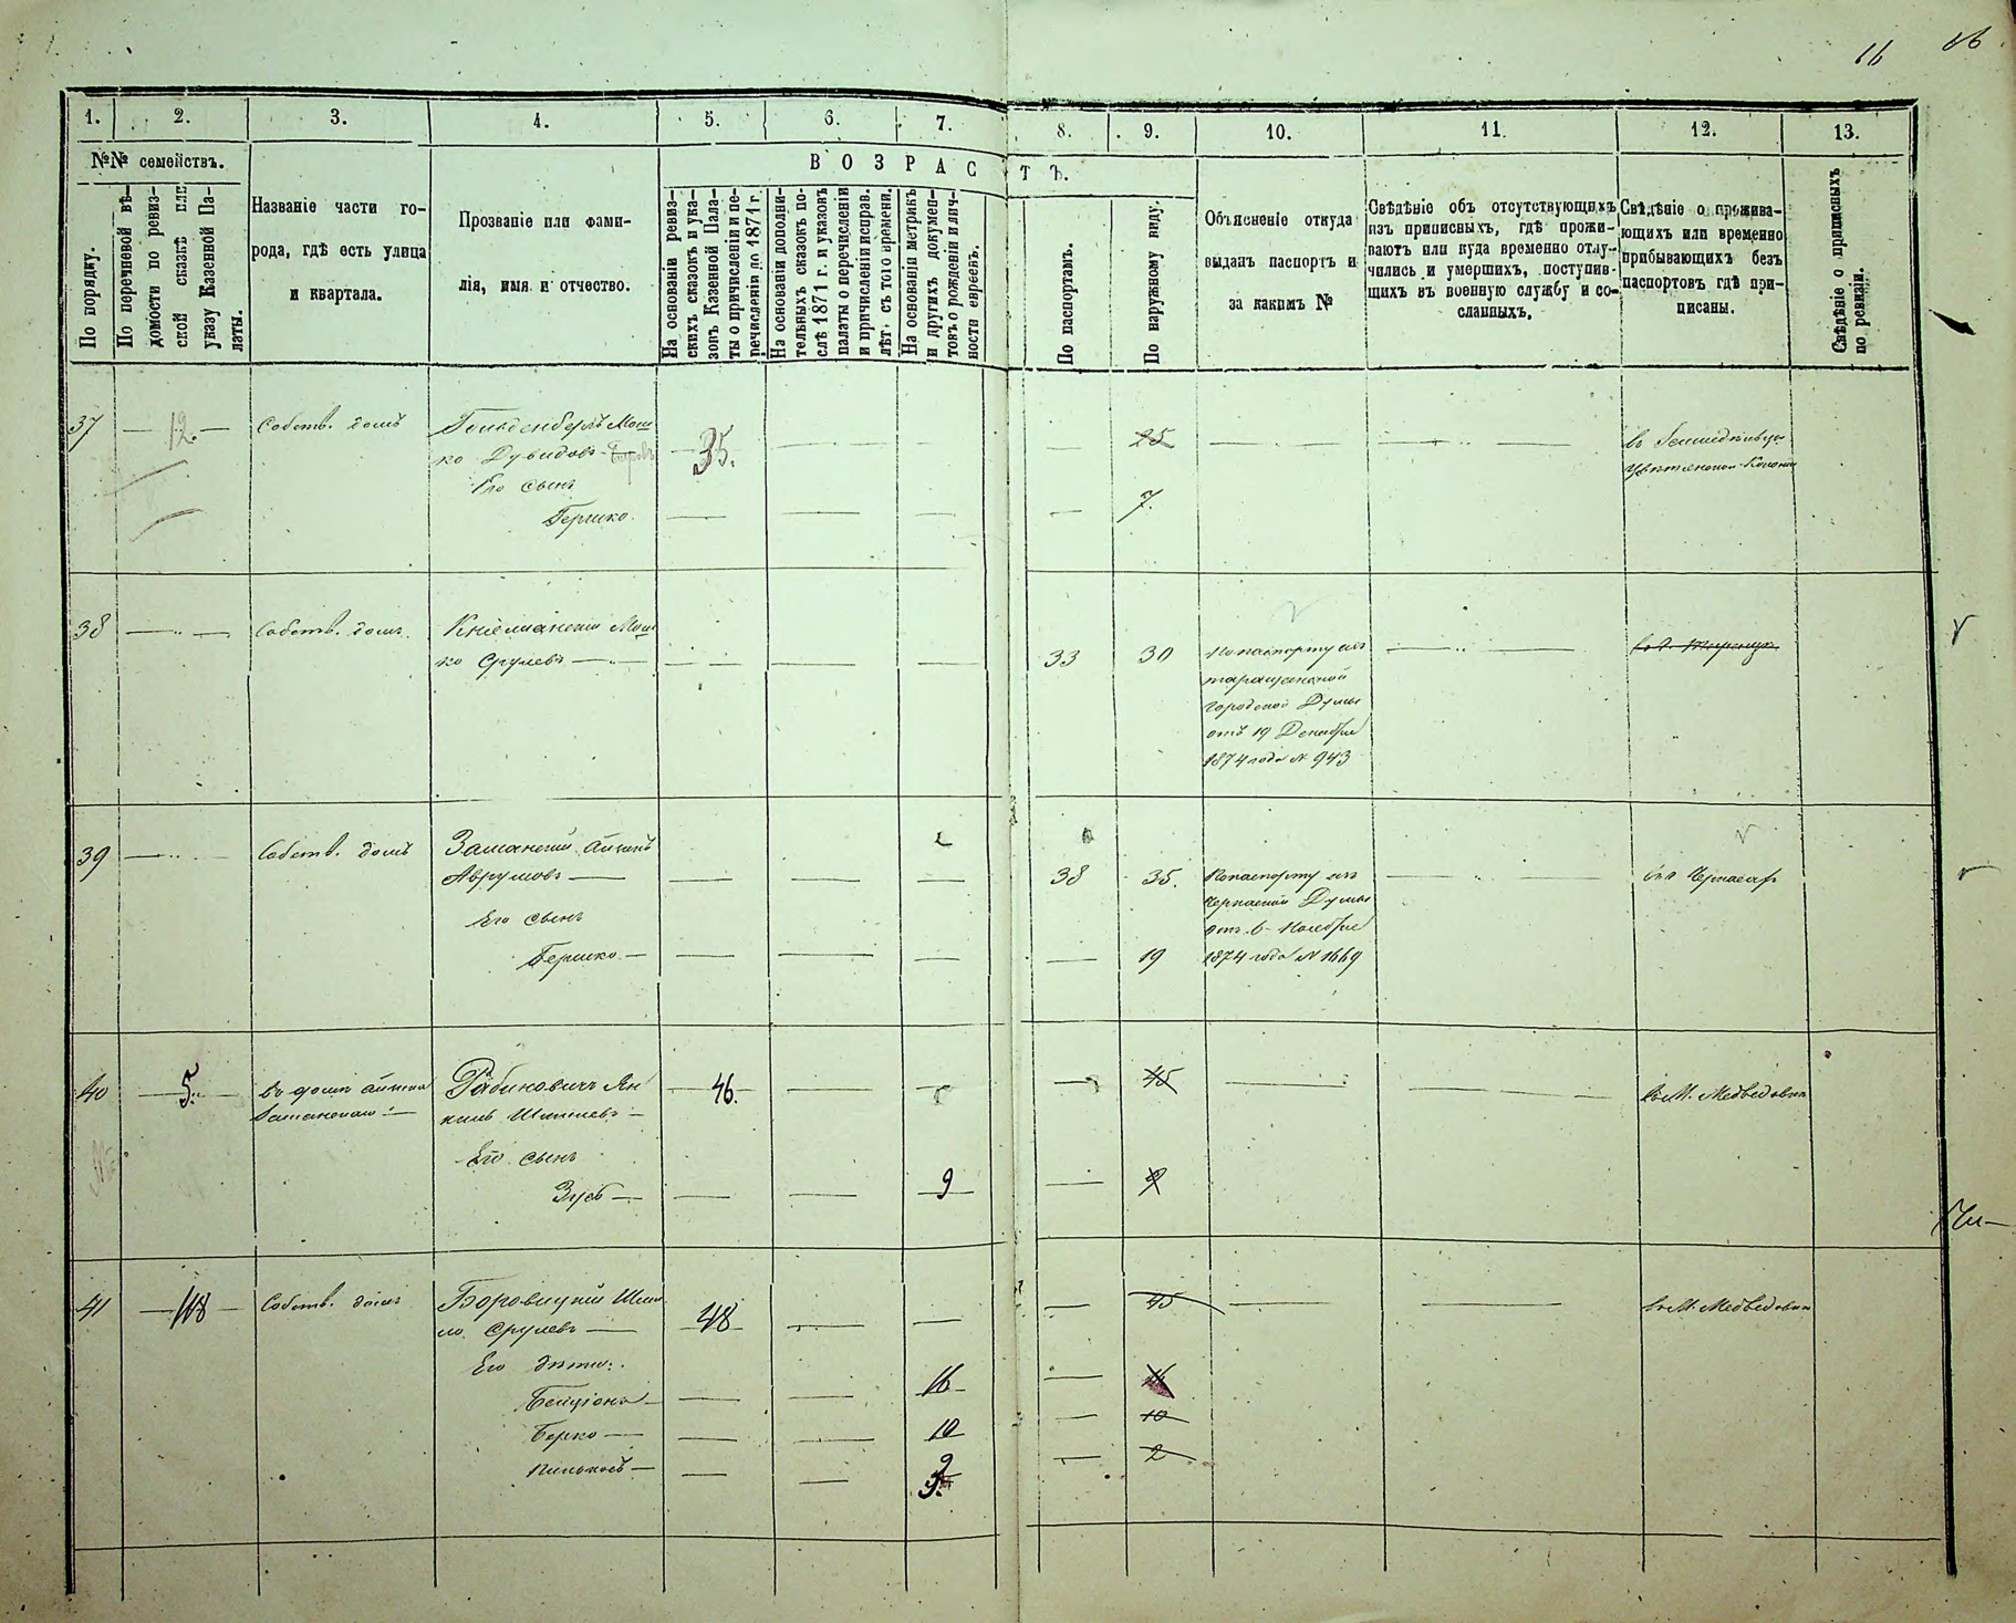 16 16
1. 2. 3. 4. 5. 6. 7. 8. 9. 10. 11. 12. 13.
№№ семействъ.
По порядку.
По перечневой вѣ-
домости по ревиз-
ской сказкѣ или
указу Казенной Па-
латы.
Названіе части го-
рода, гдѣ есть улица
и квартала.
Прозваніе или фами-
лія, имя и отчество.
ВОЗРАСТЪ.
На основаніи ревиз-
скихъ сказокъ и ука-
зовъ Казенной Пала-
ты о причисленіи и пе-
речисленіи до 1871 г.
На основаніи дополни-
тельныхъ сказокъ по-
слѣ 1871 г. и указовъ
палаты о перечисленіи
и причисленіи исправ.
лѣт. съ того времени.
На основаніи метрикъ
и другихъ докумен-
товъ о рожденіи и лич-
ности евреевъ.
По паспортамъ.
По наружному виду.
Объясненіе откуда
выданъ паспортъ и
за какимъ №
Свѣдѣніе объ отсутствующихъ
изъ приписныхъ, гдѣ прожи-
ваютъ или куда временно отлу-
чились и умершихъ, поступив-
щихъ въ военную службу и со-
сланныхъ.
Свѣдѣніе о прожива-
ющихъ или временно
прибывающихъ безъ
паспортовъ гдѣ при-
писаны.
Свѣдѣніе о приписныхъ
по ревизіи.
37 — 12. — Собств. домъ Гольденбергъ Мош
ко Дувидовъ 35. — — — 25 — — въ
Его сынъ
Гершко — — — — 7.
38 — Собств. домъ Мош
ко Срулевъ — — — — 33 30 По паспорту изъ —
таращанской
городской Думы
отъ 19 Декабря
1874 года № 943
39 — Собств. домъ Заманскій
Аврумовъ — — — — 38 35. По паспорту изъ —
Черкаской Думы
отъ 6 Ноября
Его сынъ
Гершко — — — — — 19 1874 года № 1669
40 — 5. — въ домѣ
Заманскаго Рабиновичъ Ян
кель — 46. — — — 45 — — въ М. Медведовкѣ
Его сынъ
— — — 9 — 9
41 — 118 — Собств. домъ Боровицкій Шм
Срулевъ — 48 — — — 45 — — въ М. Медведовкѣ
Его дѣти:
Бенціонъ — — — 16 — 16
Берко — — — 10 — 10
Пинхасъ — — — 2 — 2